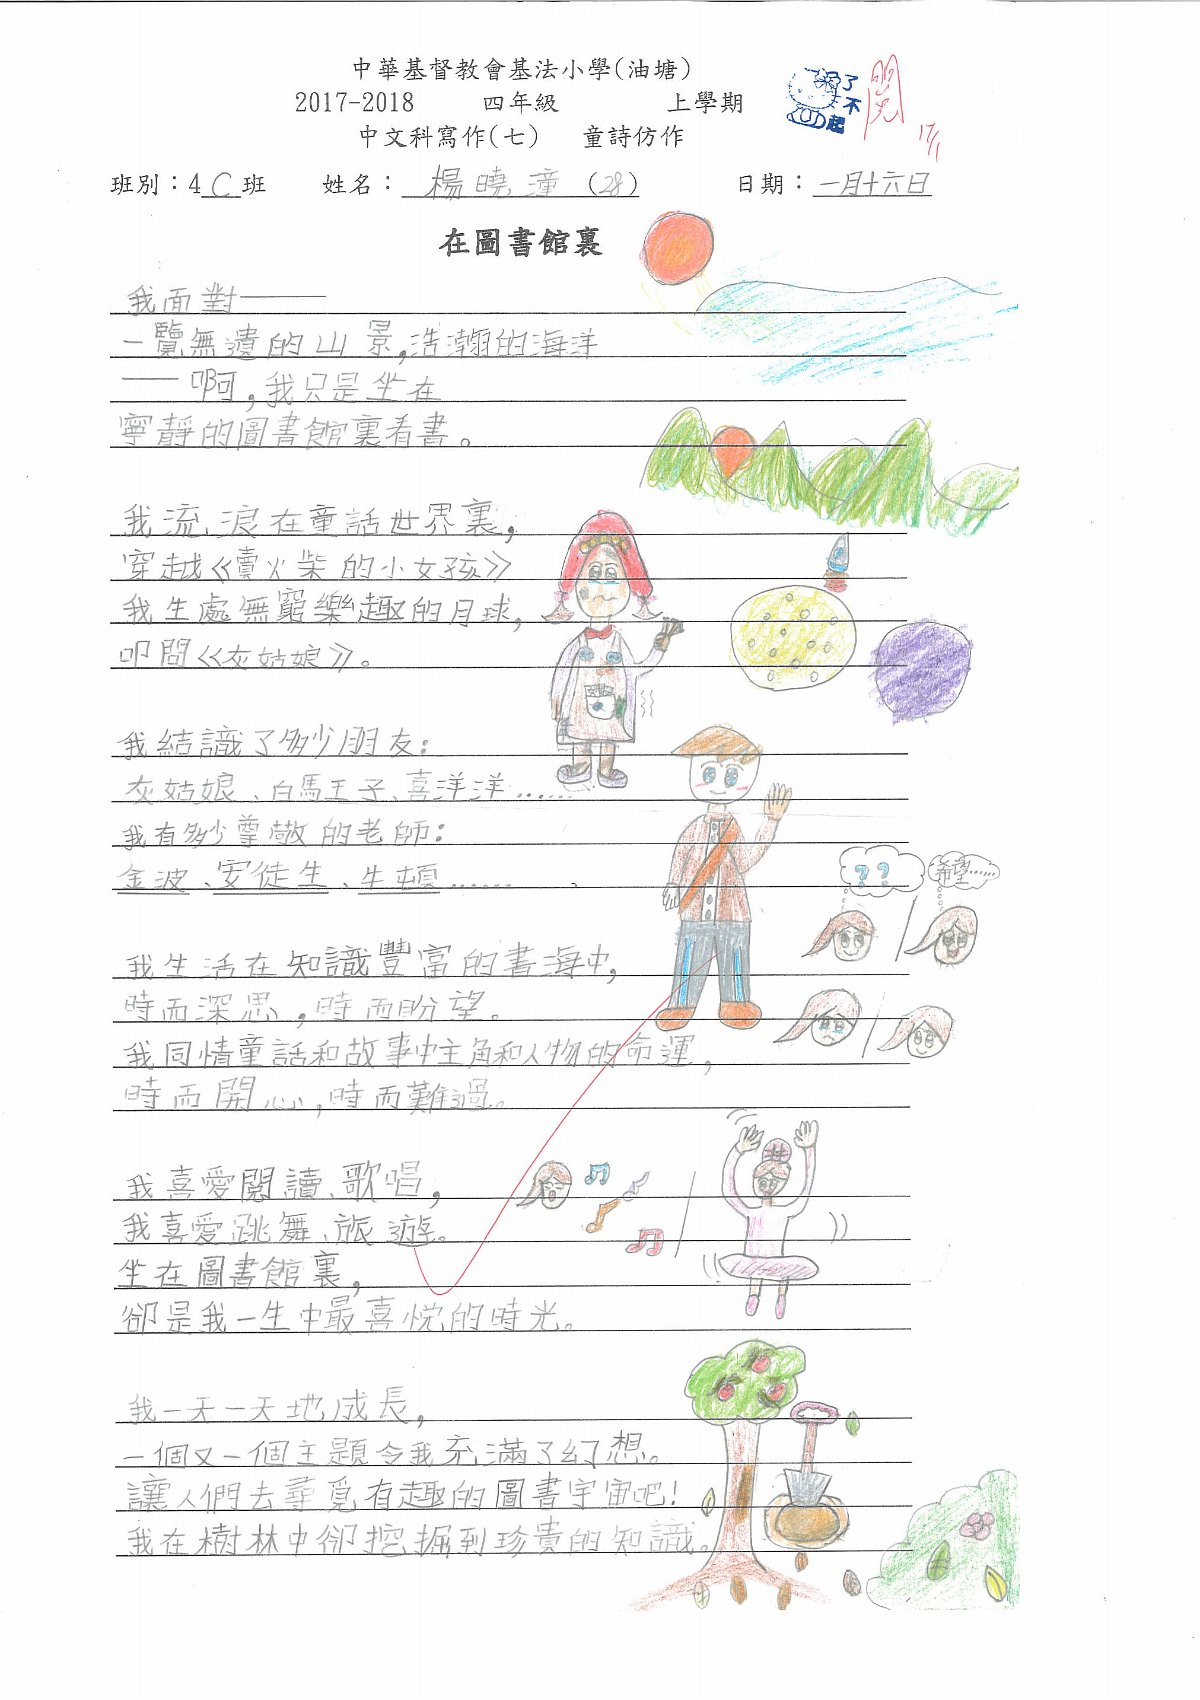 中華基督教會基法小學(油塘)
2017-2018 四年級 上學期
中文科寫作(七) 童詩仿作
了不起
17/1
班別：4C班 姓名：楊曉潼 (28) 日期：一月十六日
在圖書館裏
我面對——
一覽無遺的山景,浩瀚的海洋
——啊,我只是坐在
寧靜的圖書館裏看書。
我流浪在童話世界裏,
穿越《賣火柴的小女孩》
我生處無窮樂趣的月球,
叩問《灰姑娘》。
我結識了多少朋友:
灰姑娘、白馬王子、喜洋洋……
我有多少尊敬的老師:
金波、安徒生、牛頓……
？？
希望……
我生活在知識豐富的書海中,
時而深思,時而盼望。
我同情童話和故事中主角和人物的命運,
時而開心,時而難過。
我喜愛閱讀、歌唱,
我喜愛跳舞、旅遊。
坐在圖書館裏,
卻是我一生中最喜悅的時光。
我一天一天地成長,
一個又一個主題令我充滿了幻想。
讓人們去尋覓有趣的圖書宇宙吧!
我在樹林中卻挖掘到珍貴的知識。